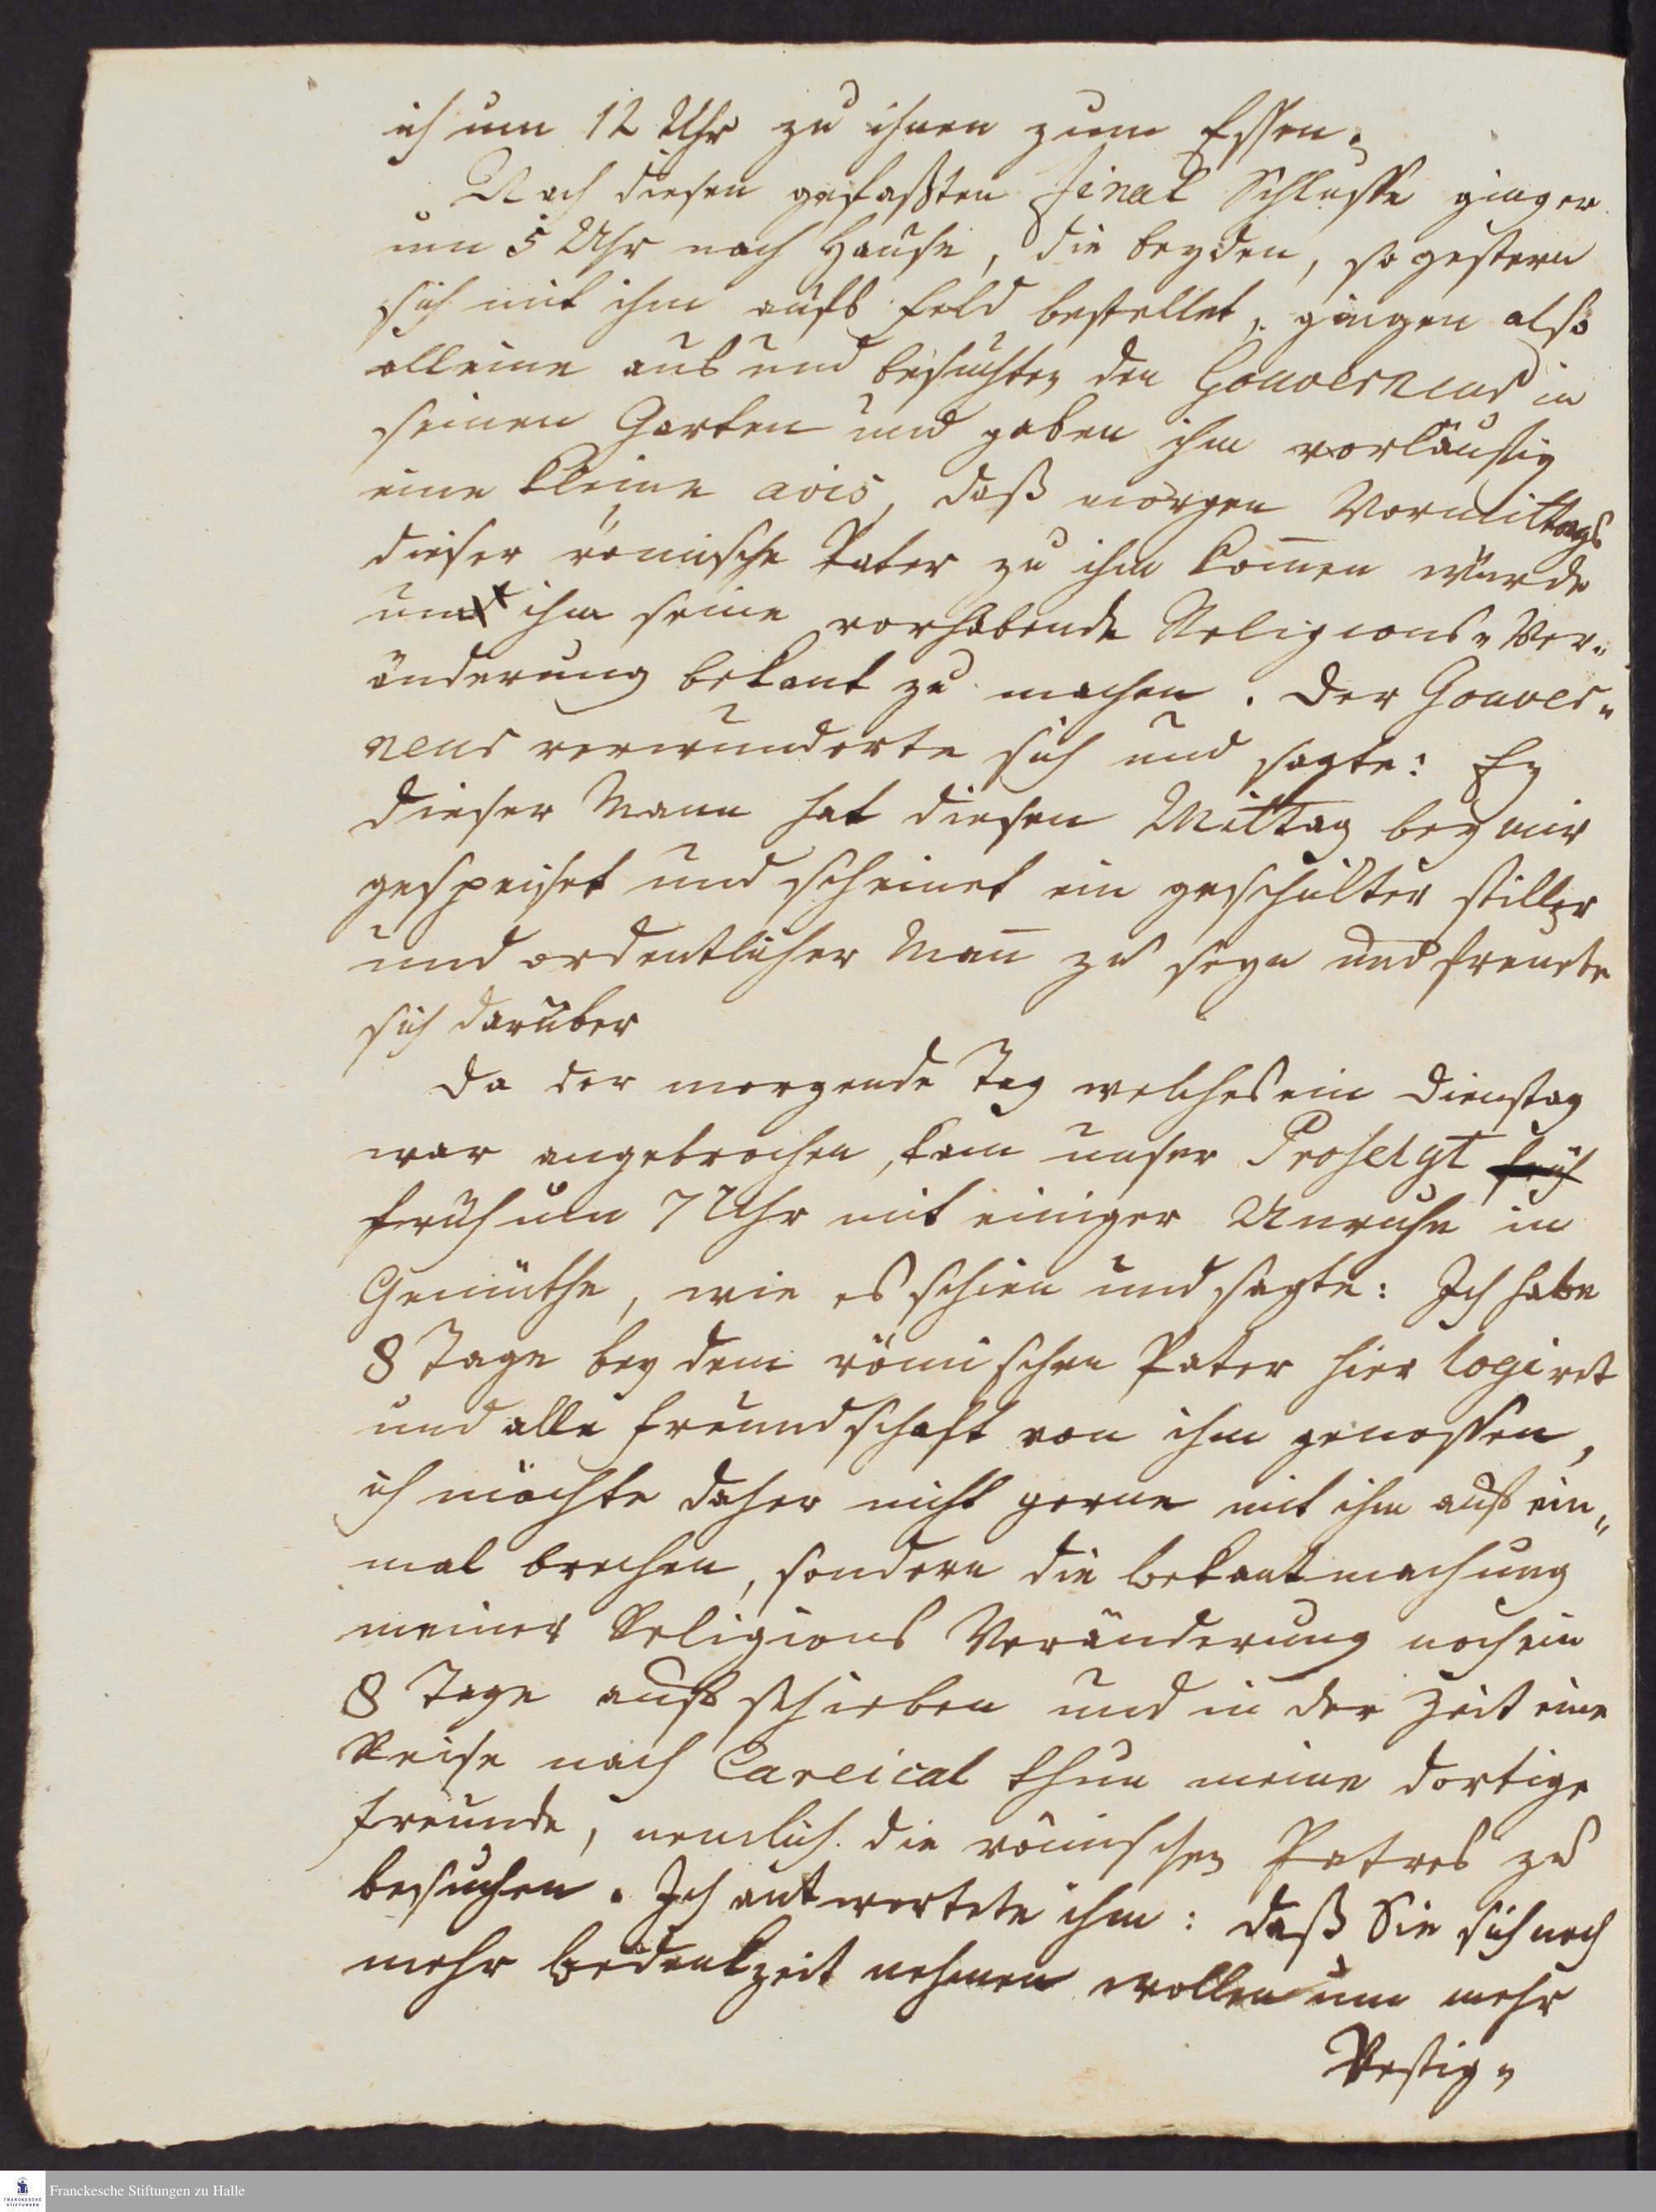 ich um 12 Uhr zu ihnen zum Essen.
Nach diesen gefaßten final Schlusse ging er
um 5 Uhr nach Hause, die beyden, so gestern
sich mit ihm aufs Feld bestellet, gingen also
alleine aus und besuchten den Gouverneur in
seinen Garten und gaben ihm vorläufig
eine kleine avis, daß morgen Vormittags
dieser römische Pater zu ihm kom̄en würde
um ihm seine vorhabende Religions-Ver-
änderung bekant zu machen. Der Gouver-
neur verwunderte sich und sagte: Ey
dieser Mann hat diesen Mittag bey mir
gespeiset und scheinet ein geschulter stiller
und ordentlicher Man̄ zu seyn und freuete
sich darüber
Da der morgende Tag welches ein Dienstag
war angebrochen, kam unser Proselyt früh
früh um 7 Uhr mit einiger Unruhe in
Gemüthe, wie es schien und sagte: Ich habe
8 Tage bey dem römischen Pater hier logiret
und alle Freundschaft von ihm genossen,
ich möchte daher nicht gerne mit ihm auf ein-
mal brechen, sondern die bekantmachung
meiner Religions Veränderung noch ein
8 Tage aufschieben und in der Zeit eine
Reise nach Careical thun meine dortige
Freunde, nemlich die römischen Patres zu
besuchen. Ich antwortete ihm: daß Sie sich noch
mehr bedenkzeit nehmen wollen um mehr
Vestig-
Franckesche Stiftungen zu Halle
FRANCKESCHE
STIFTUNGEN